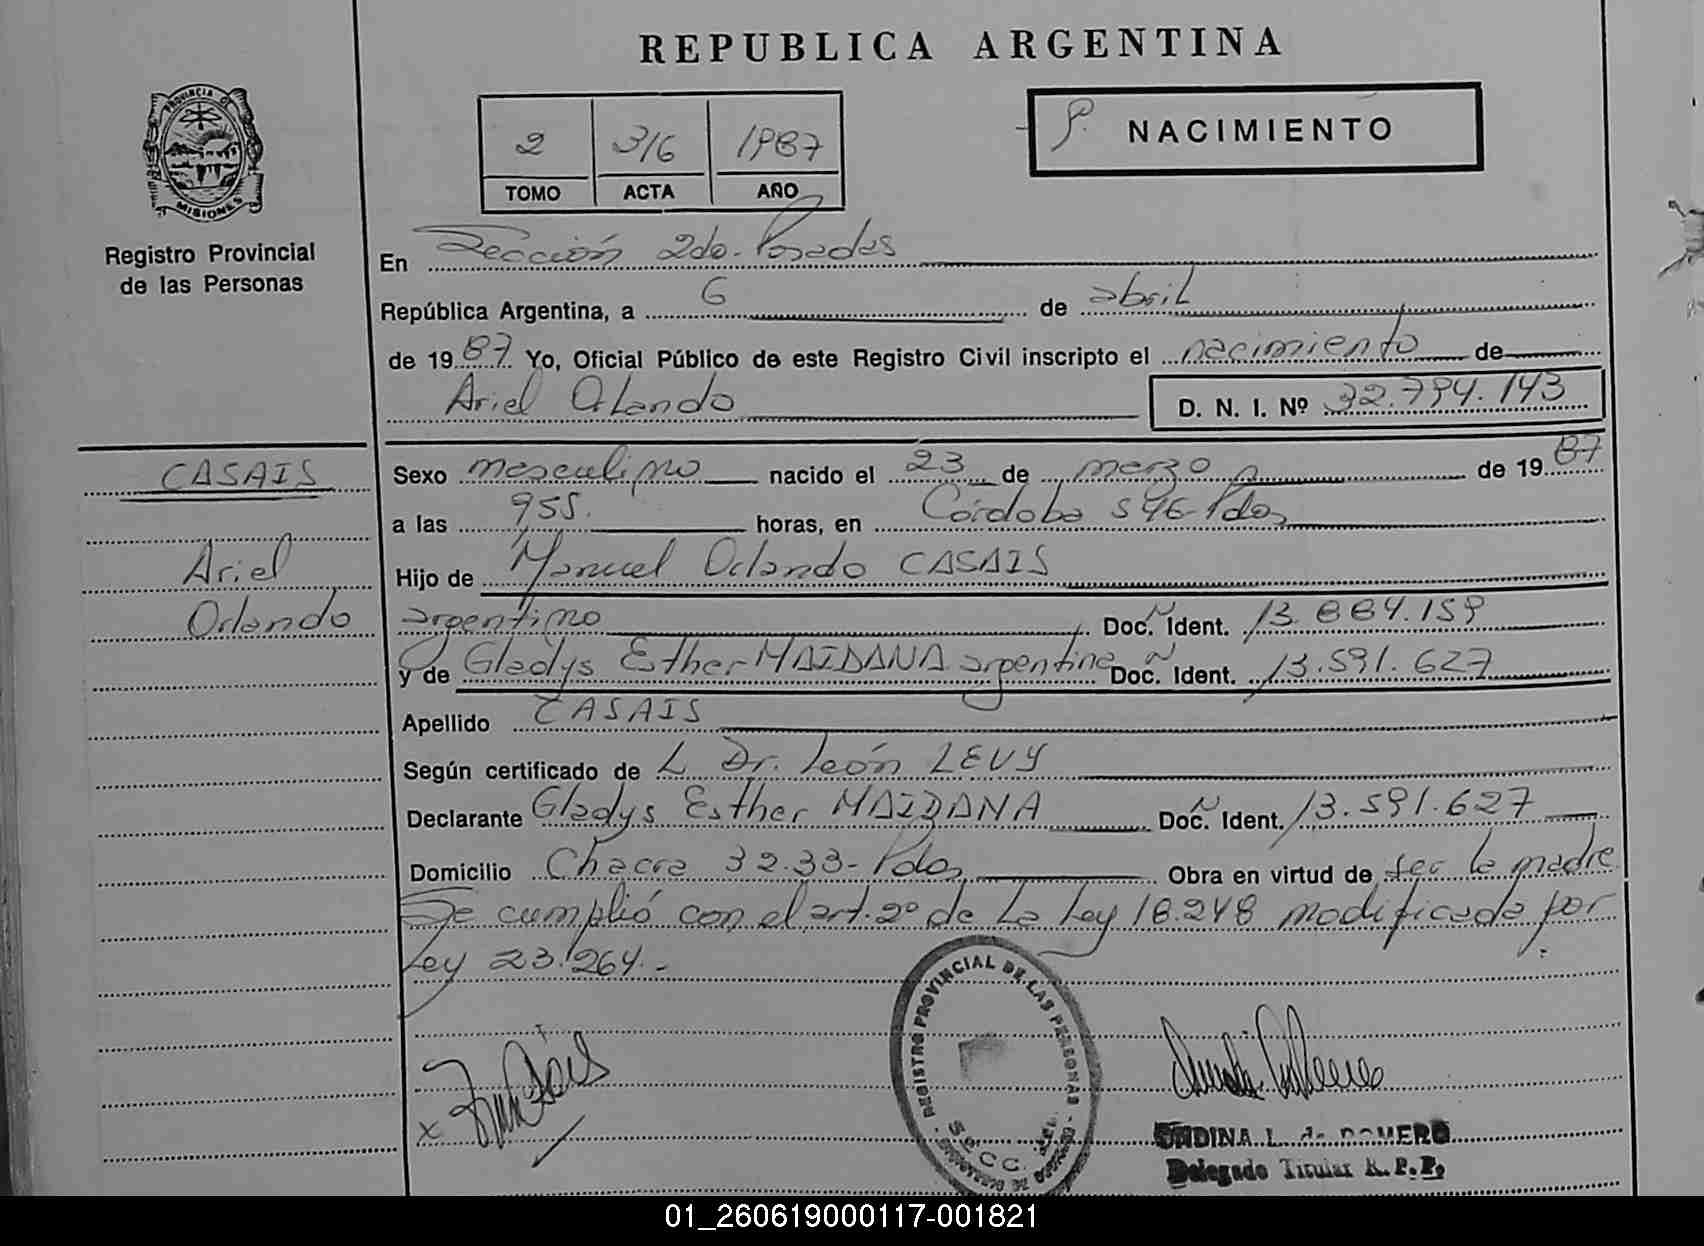 REPUBLICA ARGENTINA
PROVINCIA DE
MISIONES
Registro Provincial
de las Personas
2 316 1987
TOMO ACTA AÑO
NACIMIENTO
En Sección 2do. Posadas
República Argentina, a 6 de abril
de 1987 Yo, Oficial Público de este Registro Civil inscripto el nacimiento de
Ariel Orlando D. N. I. Nº 32.794.143
CASAIS
Ariel
Orlando
Sexo masculino nacido el 23 de marzo de 1987
a las 955. horas, en Córdoba 596-Pdas
Hijo de Manuel Orlando CASAIS
argentino Doc. Ident. 13.884.159
y de Gladys Esther MAIDANA argentina Doc. Ident. 13.591.627
Apellido CASAIS
Según certificado de L. Dr. León LEVY
Declarante Gladys Esther MAIDANA Doc. Ident. 13.591.627
Domicilio Chacra 32.33-Pdas Obra en virtud de ser la madre
Se cumplió con el art. 2º de la Ley 18.248 modificada por
Ley 23.264.-
REGISTRO PROVINCIAL DE LAS PERSONAS
SECC.
L. de ROMERO
Delegado Titular R. P. P.
01_260619000117-001821